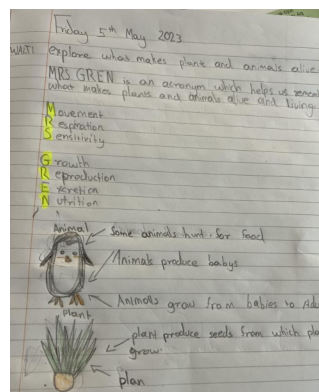 Friday 5th May 2023
WALT: explore what makes plant and animals alive
MRS GREN is an acronym which helps us
what makes plants and animals alive and living
Movement
Respiration
Sensitivity
Growth
Reproduction
Excretion
Nutrition
Animal
Some animals hunt for food
Animals produce babys
Animalls grow from babies to
Plant
plant produce seeds from which
grow.
plan